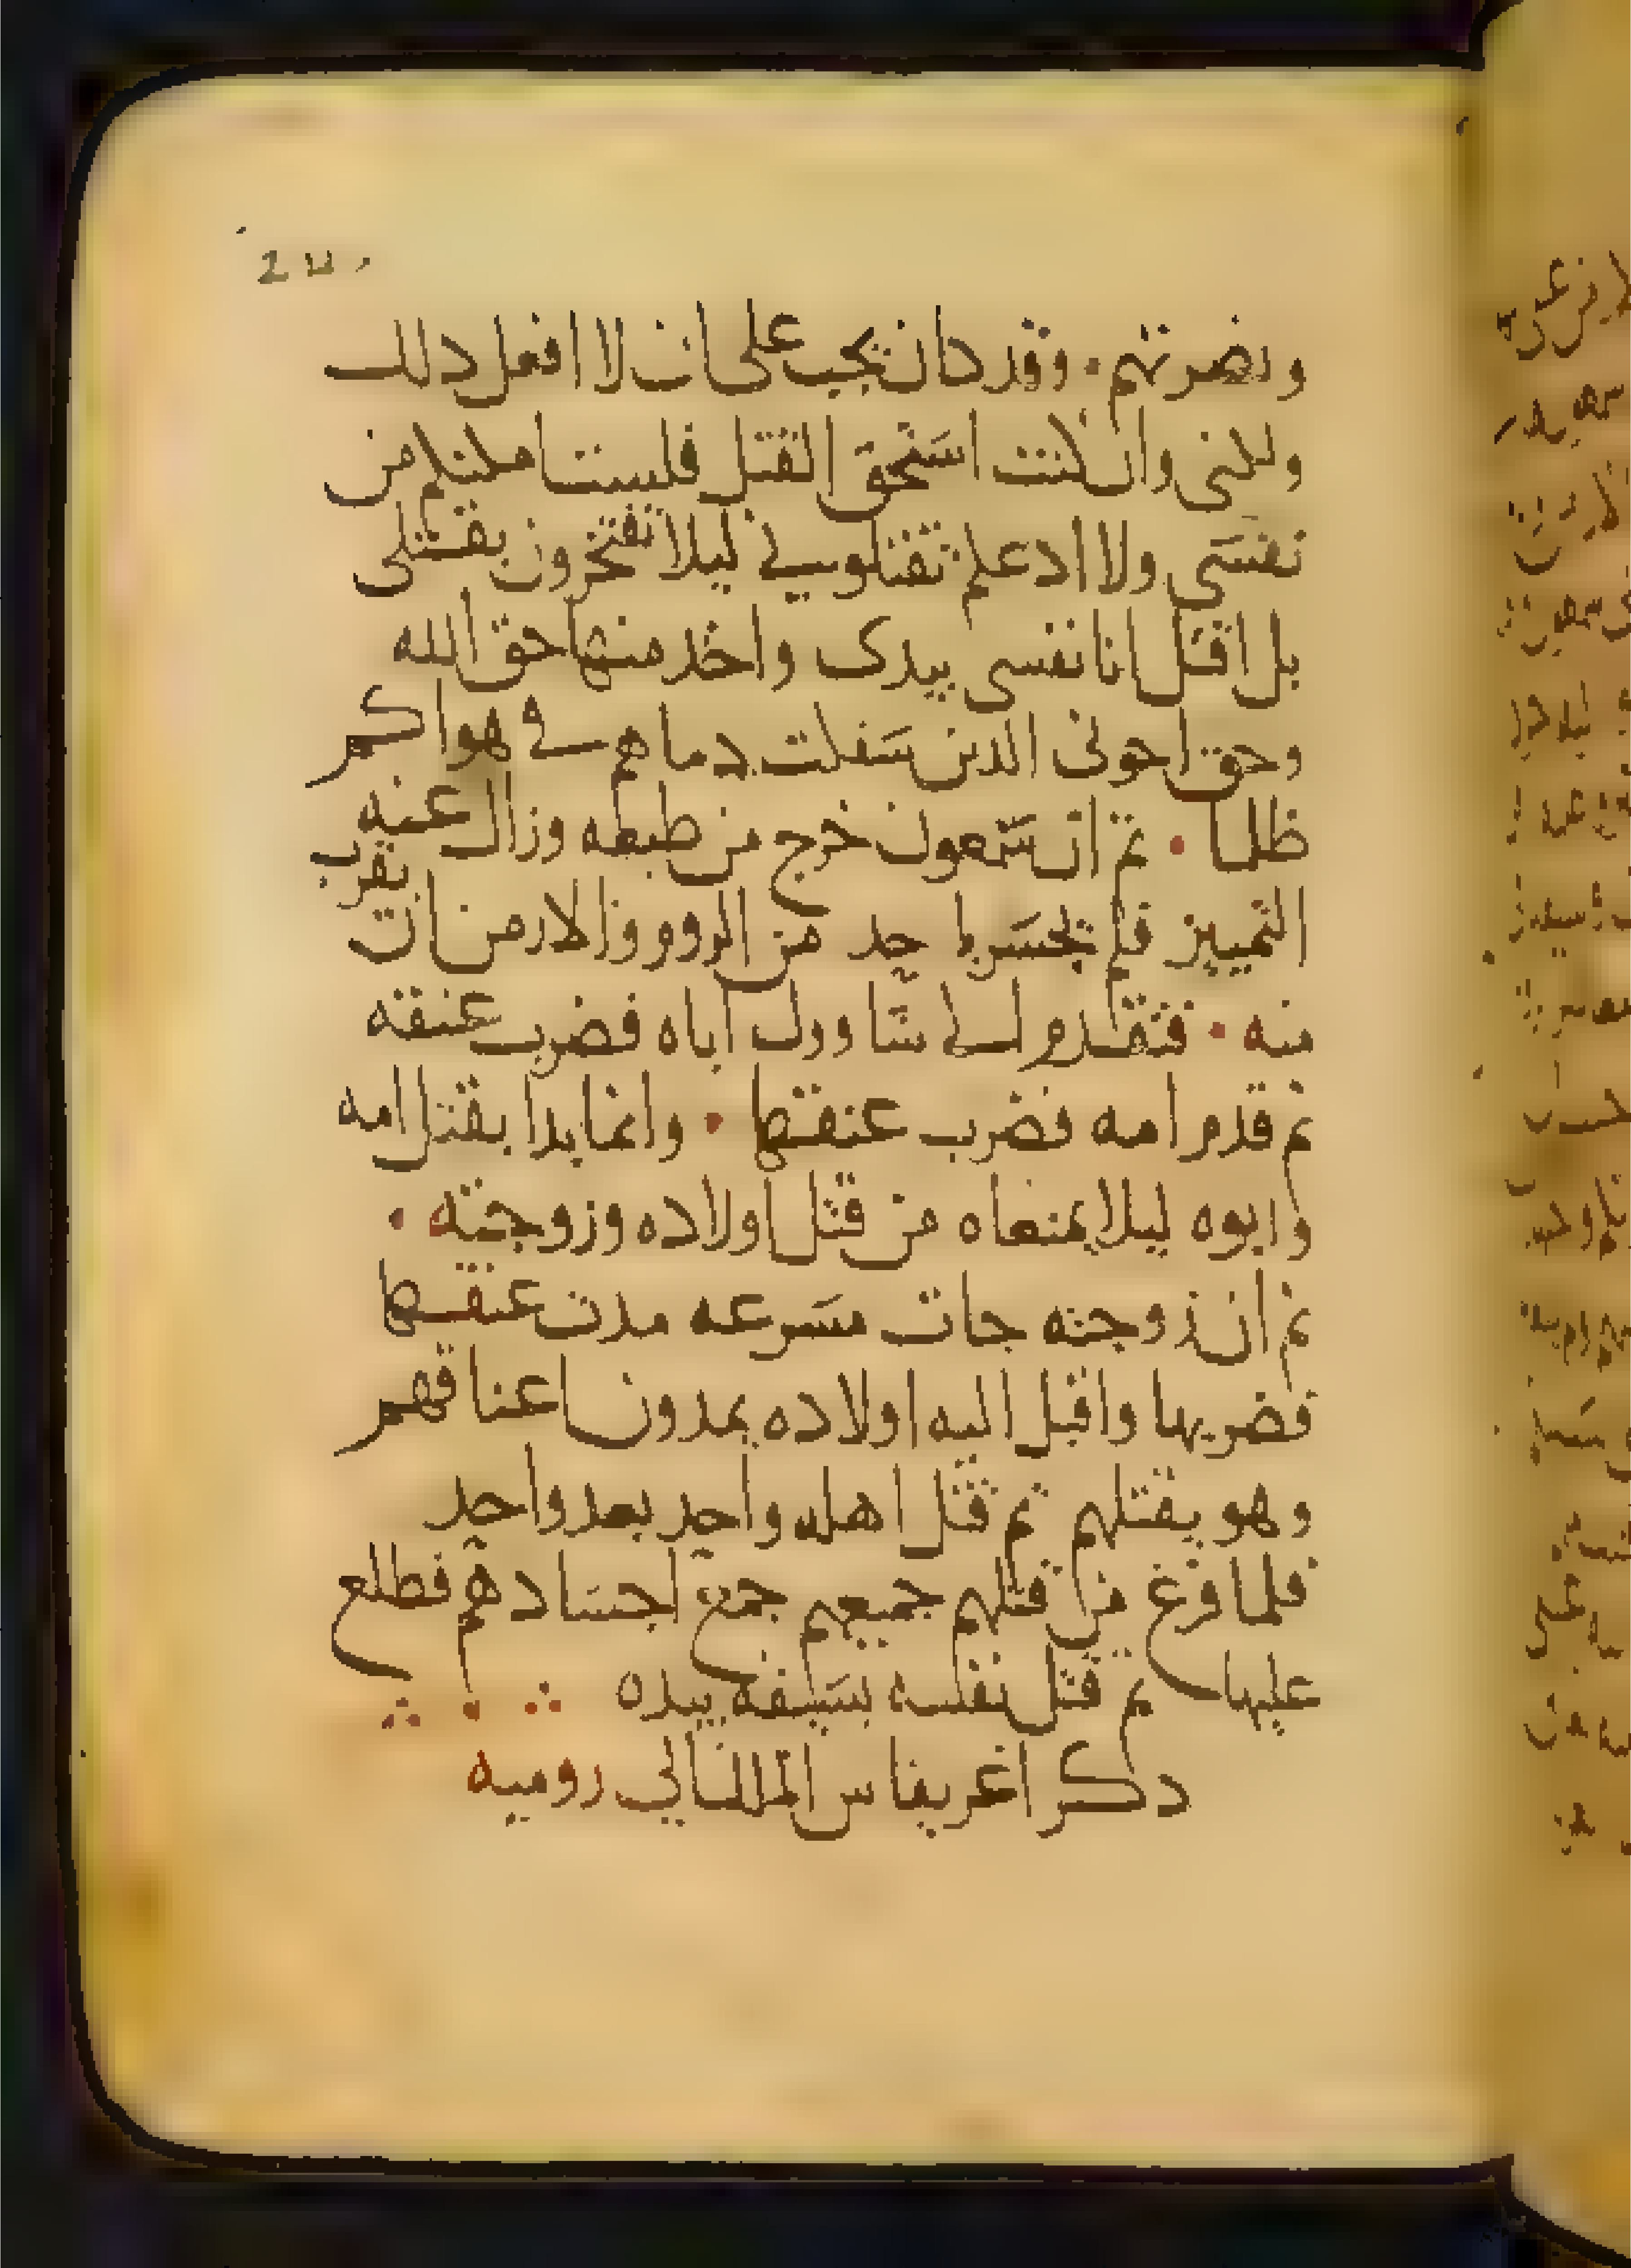 ونصرتهم · وقد كان يجب على ان لا افعل دلك
ولكنى وان كنت استحق القتل فلست امكنكم من
نفسى ولا ادعكم تقتلونى ليلا تفتخرون بقتلى
بل اقتل انا نفسى بيدى واخد منها حق الله
وحق اخوتى الدين سفكت دماهم فى هواكم
ظلما · ثم ان شمعون خرج من طبعه وزال عنه
التمييز فلم يجسر احد من الروم والارمن ان يقرب
منه · فتقدم الى شاوول اباه فضرب عنقه
ثم قدم امه فضرب عنقها · وانما بدا بقتل امه
وابوه ليلا يمنعاه من قتل اولاده وزوجته ·
ثم ان زوجته جات مسرعه مدت عنقها
فضربها واقبل اليه اولاده يمدون اعناقهم
وهو يقتلهم ثم قتل اهله واحد بعد واحد
فلما فرغ من قتلهم جميعهم جمع اجسادهم فطلع
عليها ثم قتل نفسه بسيفه بيده
دكر اغريفاس الملك الى روميه